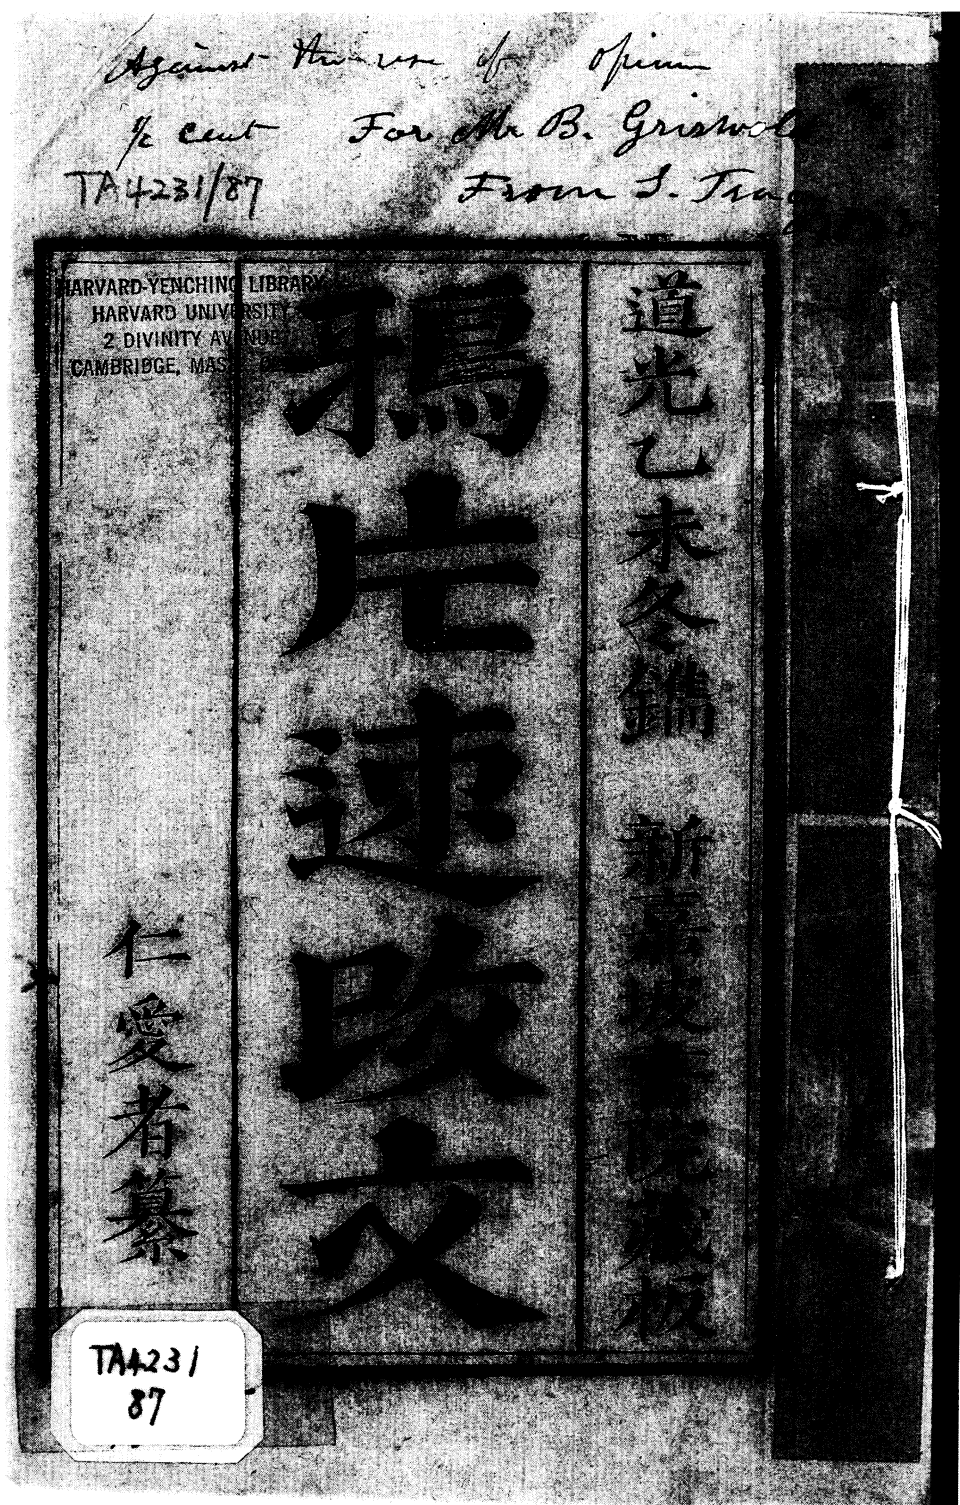 Against the use of opium
½ cent For Mr B. Griswold
TA4231/87 From I.
HARVARD-YENCHING LIBRARY
HARVARD UNIVERSITY
2 DIVINITY AVENUE
CAMBRIDGE, MASS
道光乙未冬鐫 新嘉坡書院藏板
鴉片速改文
仁愛者纂
TA4231
87